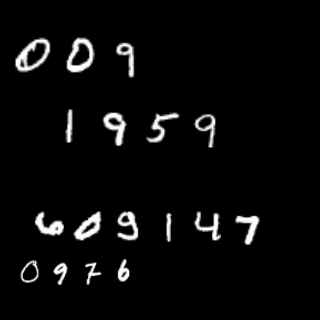 009
1959
609147
0976